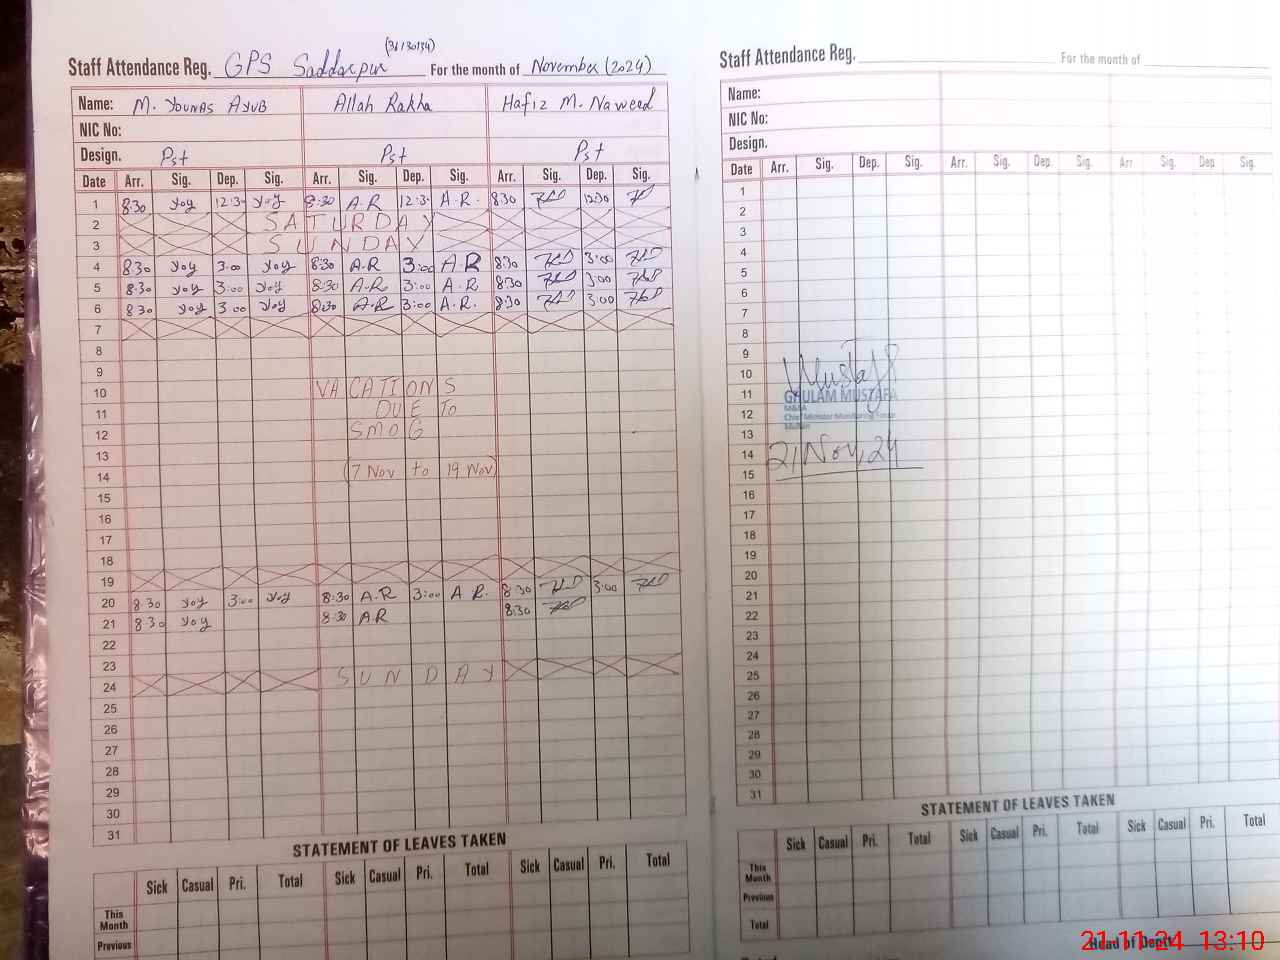 (36130134)
Staff Attendance Reg. GPS Saddarpur For the month of November (2024)
Name: M. YOUNAS AYUB Allah Rakha Hafiz M. Naweed
NIC No:
Design. Pst Pst Pst
Date Arr. Sig. Dep. Sig. Arr. Sig. Dep. Sig. Arr. Sig. Dep. Sig.
1 8:30 yoy 12:3- yoy 8:30 A.R 12:3- A.R. 8:30 12:30
2 SATURDAY
3 SUNDAY
4 8:30 yoy 3:00 yoy 8:30 A.R 3:00 A.R 8:30 3:00
5 8:30 yoy 3:00 yoy 8:30 A.R 3:00 A.R 8:30 3:00
6 8:30 yoy 3:00 yoy 8:30 A.R 3:00 A.R. 8:30 3:00
7
8
9
10 VACATIONS
11 DUE TO
12 SMOG
13
14 (7 Nov to 19 Nov)
15
16
17
18
19
20 8:30 yoy 3:00 yoy 8:30 A.R 3:00 A R. 8:30 3:00
21 8:30 yoy 8:30 A.R 8:30
22
23
24 SUNDAY
25
26
27
28
29
30
31
STATEMENT OF LEAVES TAKEN
Sick Casual Pri. Total Sick Casual Pri. Total Sick Casual Pri. Total
This Month
Previous
Staff Attendance Reg. For the month of
Name:
NIC No:
Design.
Date Arr. Sig. Dep. Sig. Arr. Sig. Dep. Sig. Arr Sig. Dep Sig.
1
2
3
4
5
6
7
8
9
10 Mustafa
11 GHULAM MUSTAFA
M&EA
12 Chief Minister Monitoring Force
Multan
13
14 21 Nov, 24
15
16
17
18
19
20
21
22
23
24
25
26
27
28
29
30
31
STATEMENT OF LEAVES TAKEN
Sick Casual Pri. Total Sick Casual Pri. Total Sick Casual Pri. Total
This Month
Previous
Total
Head of Deptt.
21-11-24 13:10